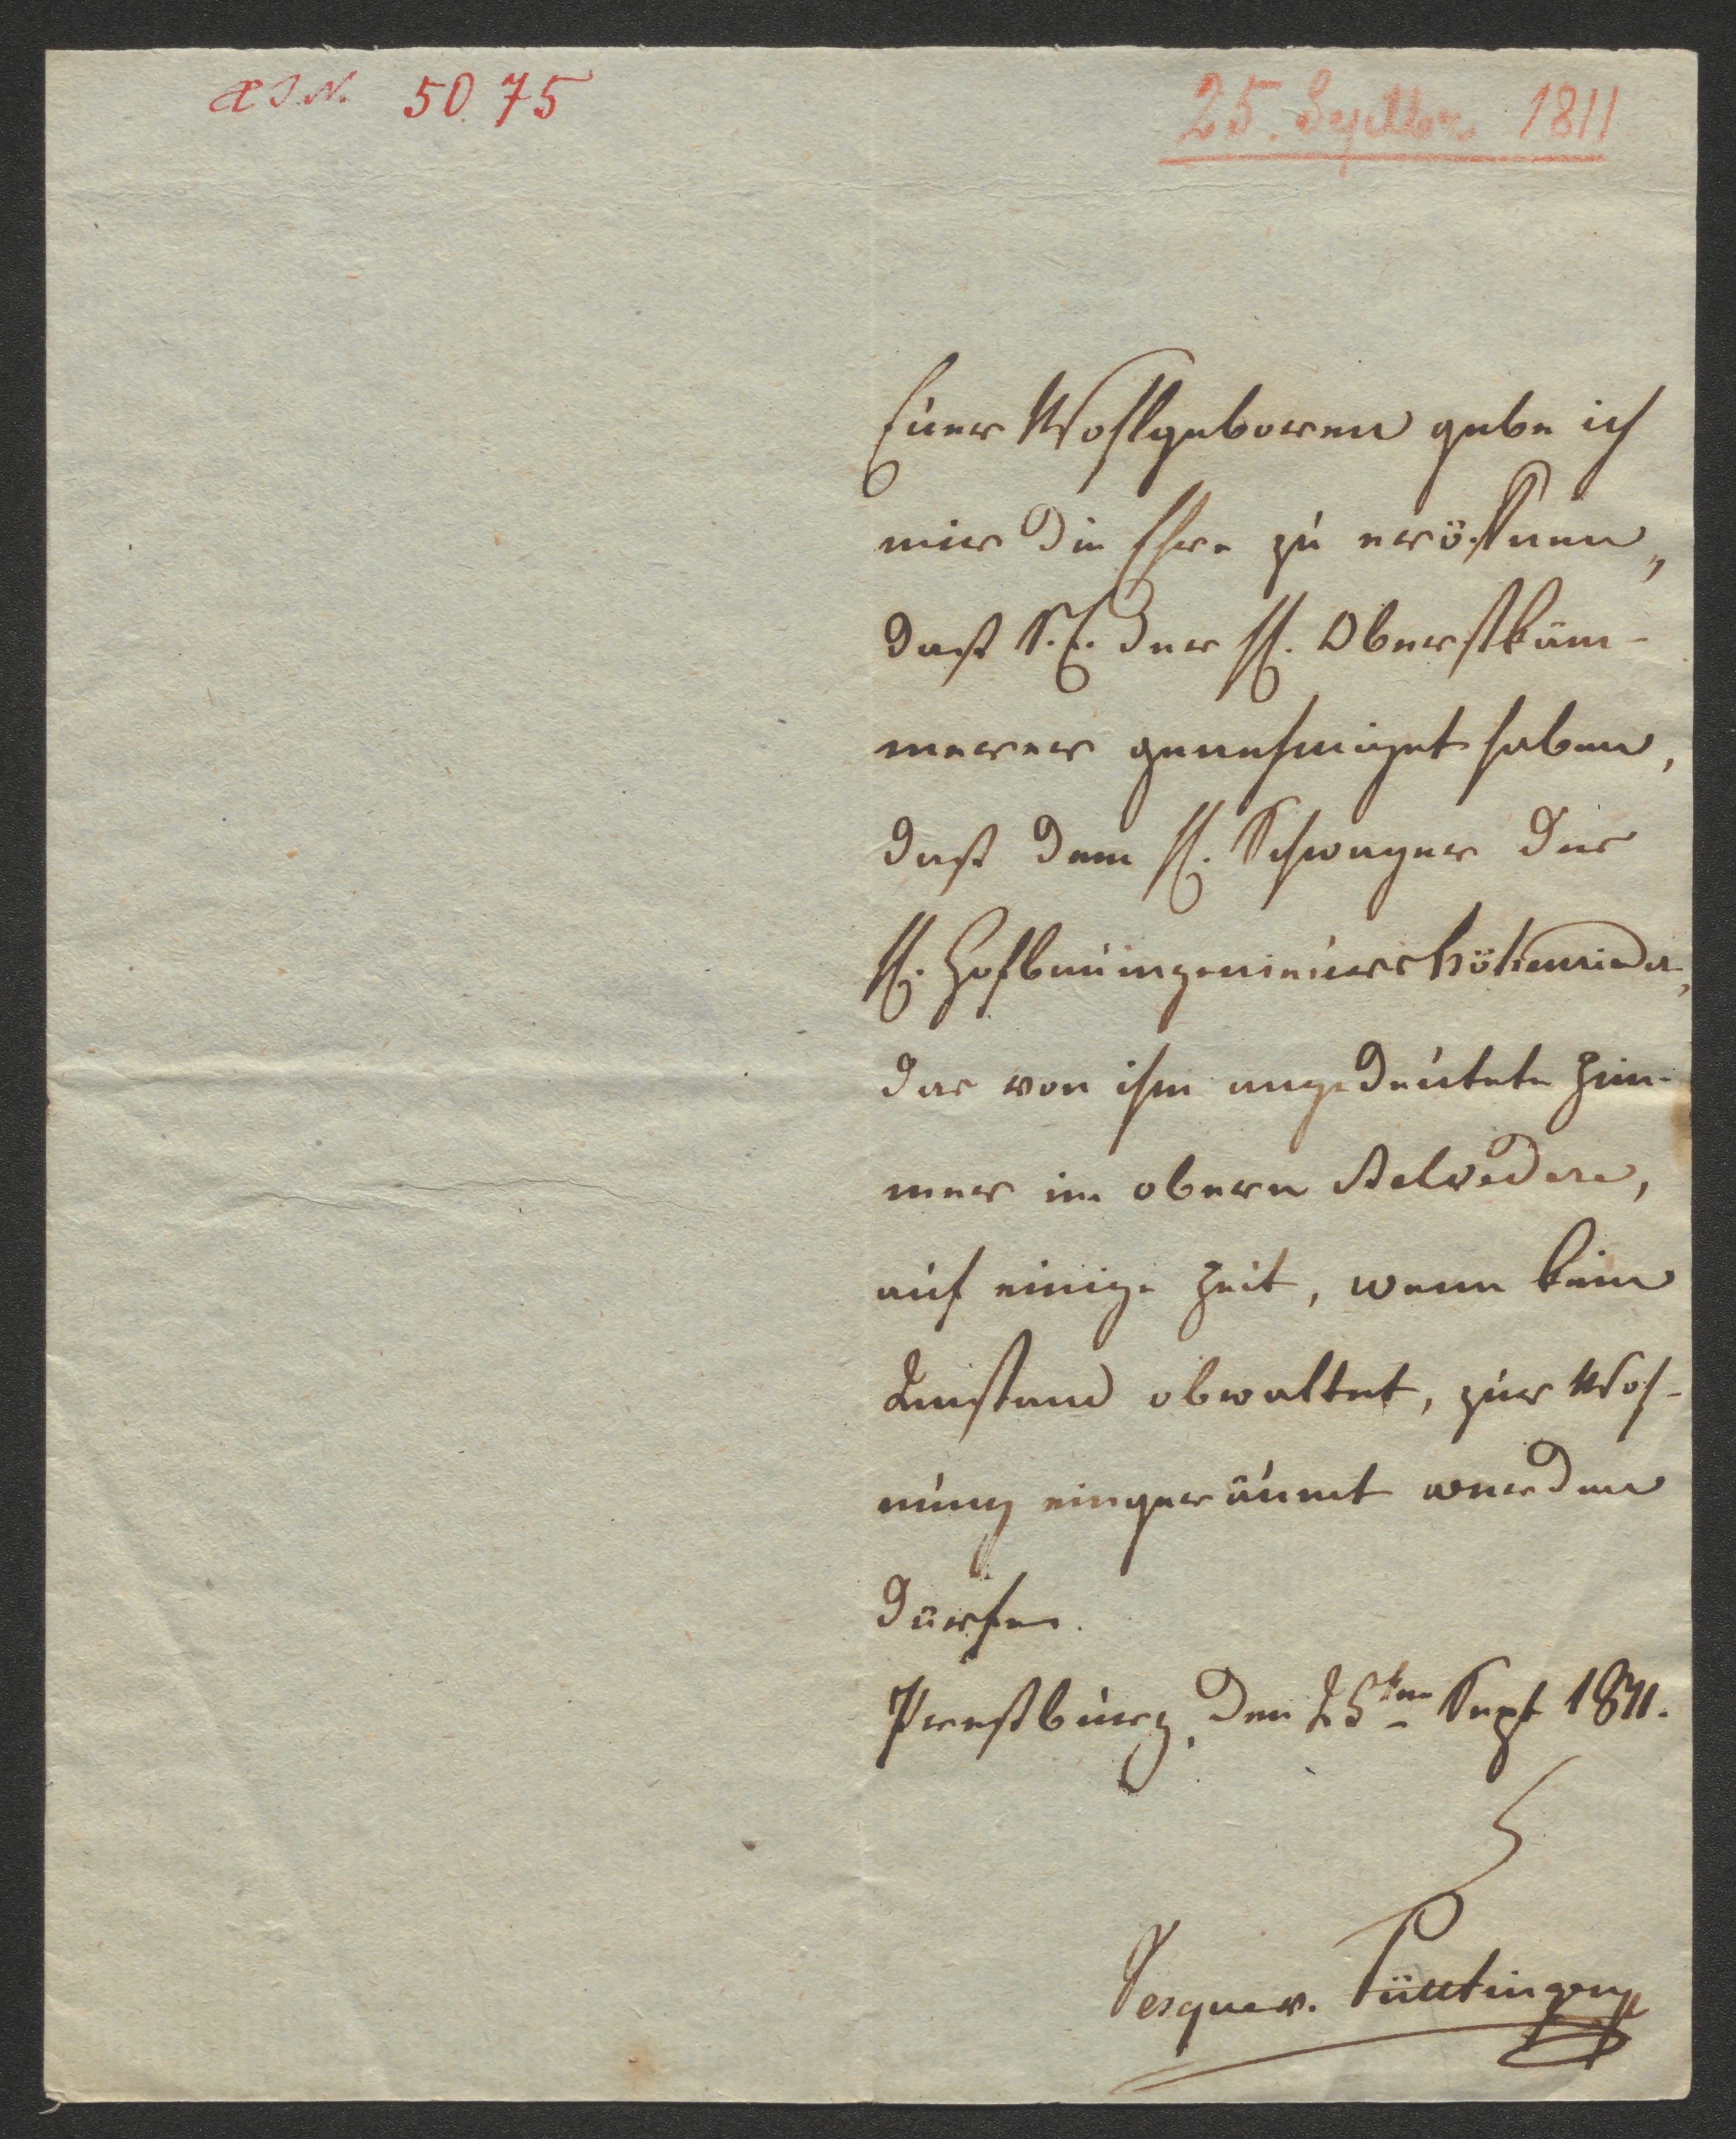 Æ I.N. 5075
25. Septbr 1811
Euer Wohlgeboren gebe ich
mir die Ehre zu eröffnen,
daß S.E. der H. Oberstkäm-
merer genehmiget haben,
daß dem H. Schwager des
H. Hofbauingenieurs Höhenrieder,
das von ihm angedeutete Zim-
mer im obern Belvedere,
auf einige Zeit, wenn kein
Umstand obwaltet, zur Woh-
nung eingeräumt werden
dürfen.
Preßburg, den 25ten Sept 1811.
Vesque v. Püttlingen